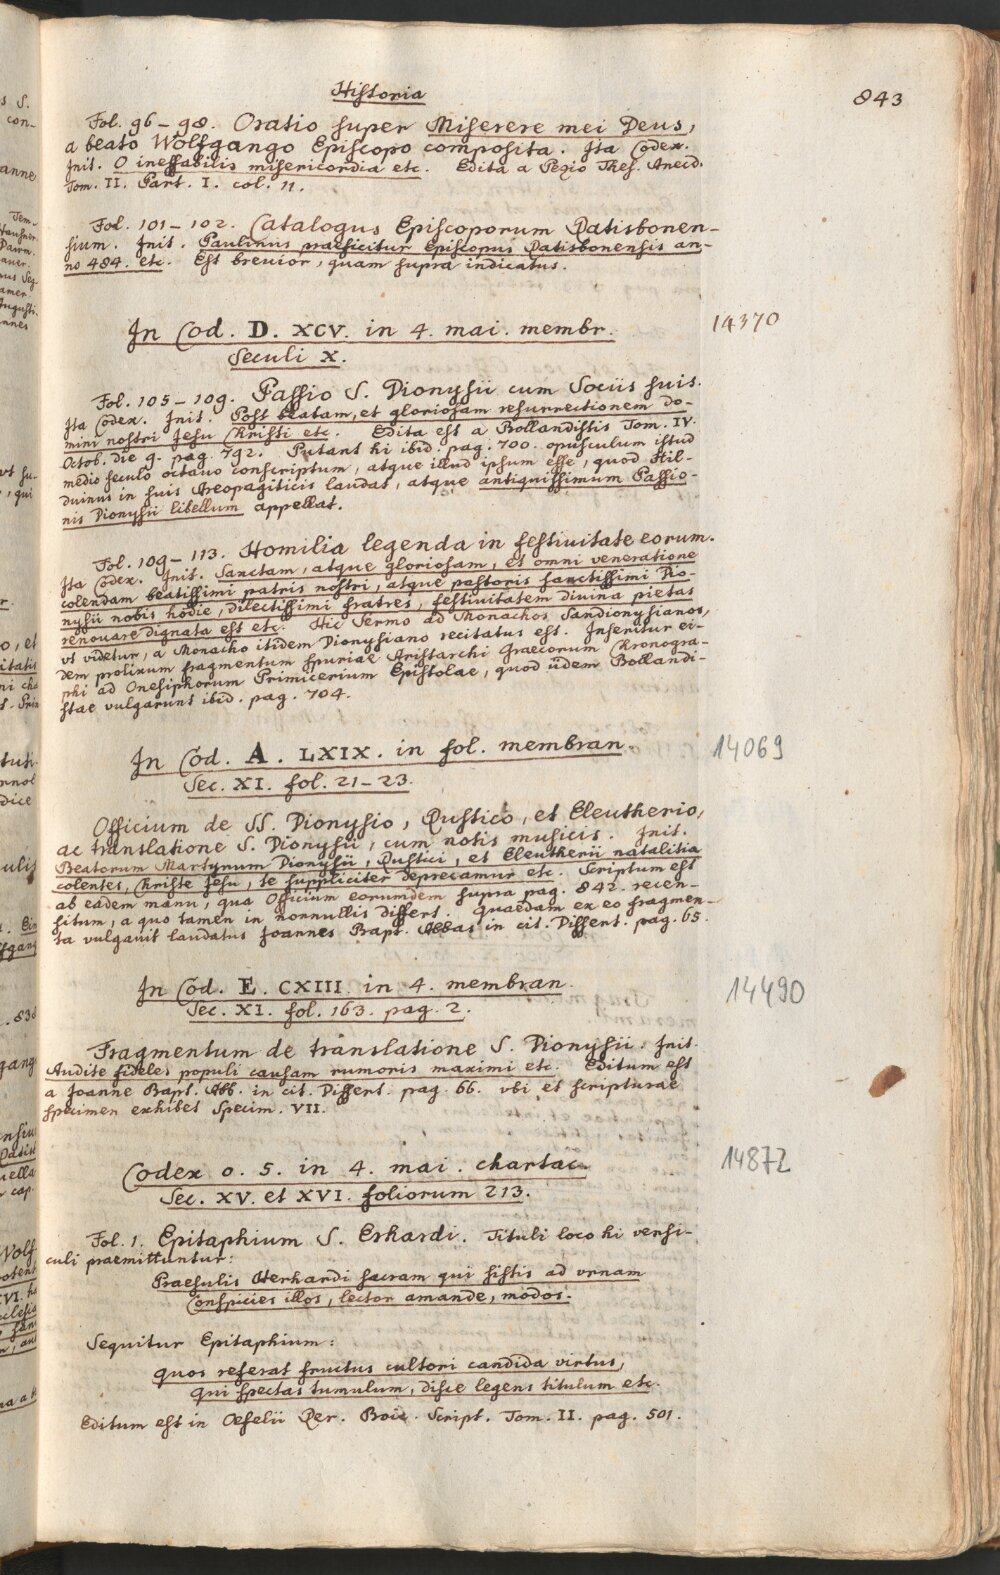 Historia
843
Fol. 96–98. Oratio super Miserere mei Deus,
a beato Wolfgango Episcopo composita. Ita Codex.
Init. O ineffabilis misericordia etc. Edita a Pezio Thes. Anecd.
Tom. II. Part. I. col. 11.
Fol. 101–102. Catalogus Episcoporum Ratisbonen-
sium. Init. Paulinus praeficitur Episcopus Ratisbonensis an-
no 484. etc. Est breuior, quam supra indicatus.
In Cod. D. XCV. in 4. mai. membr.
14370
Seculi X.
Fol. 105–109. Passio S. Dionysii cum Sociis suis.
Ita Codex. Init. Post beatam, et gloriosam resurrectionem do-
mini nostri Jesu Christi etc. Edita est a Bollandistis Tom. IV.
Octob. die 9. pag. 792. Putant hi ibid. pag. 700. opusculum istud
medio seculo octauo conscriptum, atque illud ipsum esse, quod Hil-
duinus in suis Areopagiticis laudat, atque antiquissimum Passio-
nis Dionysii libellum appellat.
Fol. 109–113. Homilia legenda in festiuitate eorum.
Ita Codex. Init. Sanctam, atque gloriosam, et omni veneratione
colendam beatissimi patris nostri, atque pastoris sanctissimi Dio-
nysii nobis hodie, dilectissimi fratres, festiuitatem diuina pietas
renouare dignata est etc. Hic Sermo ad Monachos Sandionysianos,
vt videtur, a Monacho itidem Dionysiano recitatus est. Inseritur ei-
dem prolixum fragmentum spuriae Aristarchi Graecorum Chronogra-
phi ad Onesiphorum Primicerium Epistolae, quod iidem Bollandi-
stae vulgarunt ibid. pag. 704.
In Cod. A. LXIX. in fol. membran.
14069
Sec. XI. fol. 21–23.
Officium de SS. Dionysio, Rustico, et Eleutherio,
ac translatione S. Dionysii, cum notis musicis. Init.
Beatorum Martyrum Dionysii, Rustici, et Eleutherii natalitia
colentes, Christe Jesu, te suppliciter deprecamur etc. Scriptum est
ab eadem manu, qua Officium eorumdem supra pag. 842. recen-
situm, a quo tamen in nonnullis differt. Quaedam ex eo fragmen-
ta vulgauit laudatus Joannes Bapt. Abbas in cit. Dissert. pag. 65.
In Cod. E. CXIII. in 4. membran.
14490
Sec. XI. fol. 163. pag. 2.
Fragmentum de translatione S. Dionysii. Init.
Audite fideles populi causam rumoris maximi etc. Editum est
a Joanne Bapt. Abb. in cit. Dissert. pag. 66. vbi et scripturae
specimen exhibet Specim. VII.
Codex o. 5. in 4. mai. chartac.
14872
Sec. XV. et XVI. foliorum 213.
Fol. 1. Epitaphium S. Erhardi. Tituli loco hi versi-
culi praemittuntur:
Praesulis Herhardi sacram qui sistis ad vrnam
Conspicies illos, lector amande, modos.
Sequitur Epitaphium:
Quos referat fructus cultori candida virtus,
Qui spectas tumulum, disce legens titulum etc.
Editum est in Oefelii Rer. Boic. Script. Tom. II. pag. 501.